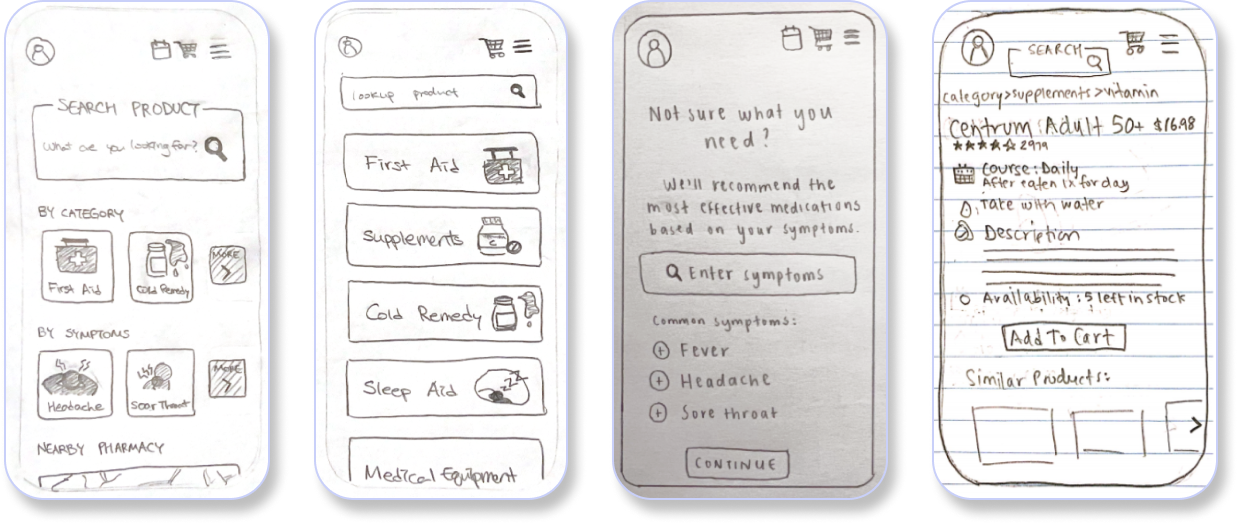 SEARCH PRODUCT
What are you looking for?
BY CATEGORY
First Aid
Cold Remedy
MORE
BY SYMPTOMS
Headache
Soar Throat
MORE
NEARBY PHARMACY
lookup product
First Aid
Supplements
C
Cold Remedy
Sleep Aid
zzz
Medical Equipment
Not sure what you
need?
We'll recommend the
most effective medications
based on your symptoms.
Enter symptoms
Common symptoms:
Fever
Headache
Sore throat
CONTINUE
SEARCH
category>supplements>vitamin
Centrum Adult 50+ $16.98
2979
Course: Daily
After eaten 1x for day
Take with water
Description
Availability: 5 left in stock
Add To Cart
Similar Products: